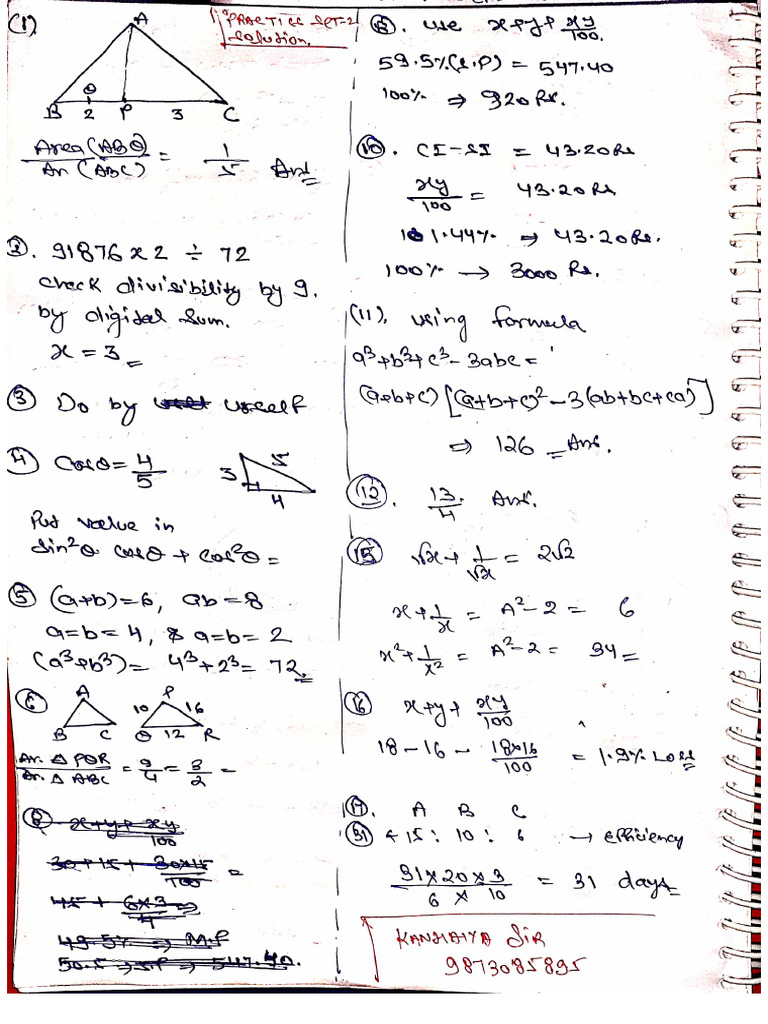 (1)
PRACTICE SET=2
Solution.
A
θ
B 2 P 3 C
Area(ABθ)/Ar(ABC) = 1/5 Ans
2. 91876x2 ÷ 72
Check divisibility by 9.
by digital sum.
x = 3
3 Do by urself
4 Cosθ = 4/5
3 5 4
Put value in
Sin²θ cosθ + cos²θ =
5 (a+b)=6, ab=8
a=b=4, a=b=2
(a³+b³)= 4³+2³=72.
6 A P
10 16
B C Q 12 R
Ar. Δ PQR/Ar. Δ ABC = 9/4 = 3/2 =
8 x+y+ xy/100
30+15+ 30x15/100 =
45+ 6x3/4 ⇒
49.5% ⇒ M.P
50.5 ⇒ S.P ⇒ 547.40.
8. use x+y+ xy/100.
59.5%(S.P) = 547.40
100% ⇒ 920 Rs.
10. CI-SI = 43.20Rs
xy/100 = 43.20Rs
1.44% ⇒ 43.20Rs.
100% → 3000 Rs.
(11). using formula
a³+b³+c³-3abc =
(a+b+c)[(a+b+c)²-3(ab+bc+ca)]
⇒ 126 Ans.
12. 13/4 Ans.
15 √x+ 1/√x = 2√2
x+ 1/x = A²-2 = 6
x²+ 1/x² = A²-2 = 34
16 x+y+ xy/100
18-16- 18x16/100 = 1.9% Loss
17. A B C
31 15 : 10 : 6 → efficiency
31x20x3/6 x 10 = 31 days
KANHAIYA Sir
9873085895